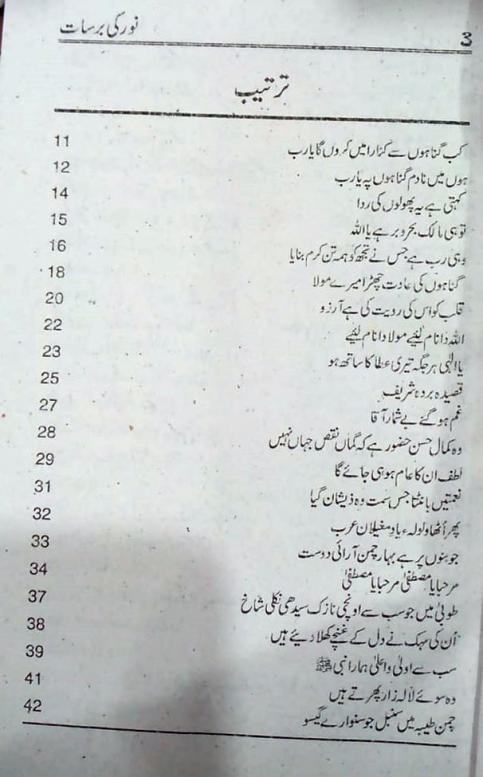 3 نور کی برسات
ترتیب
کب گناہوں سے کنارا میں کروں گا یا رب 11
ہوں میں نادم گناہوں پہ یا رب 12
کہتی ہے یہ پھولوں کی ردا 14
تو ہی مالک بحر و بر ہے یا اللہ 15
وہی رب ہے جس نے تجھ کو ہمہ تن کرم بنایا 16
گناہوں کی عادت چھڑا میرے مولا 18
قلب کو اس کی رویت کی ہے آرزو 20
اللہ دا نام لیئے مولا دا نام لیئے 22
یا الٰہی ہر جگہ تیری عطا کا ساتھ ہو 23
قصیدہ بردہ شریف 25
غم ہو گئے بے شمار آقا 27
وہ کمال حسن حضور ہے کہ گماں نقص جہاں نہیں 28
لطف ان کا عام ہو ہی جائے گا 29
نعمتیں بانٹتا جس سمت وہ ذیشان گیا 31
پھر اٹھا ولولہء یاد مغیلان عرب 32
جوبنوں پر ہے بہار چمن آرائی دوست 33
مرحبا یا مصطفیٰ مرحبا یا مصطفیٰ 34
طوبیٰ میں جو سب سے اونچی نازک سیدھی نکلی شاخ 37
اُن کی مہک نے دل کے غنچے کھلا دیئے ہیں 38
سب سے اولیٰ و اعلیٰ ہمارا نبی ﷺ 39
وہ سوئے لالہ زار پھرتے ہیں 41
چمن طیبہ میں سنبل جو سنوارے گیسو 42